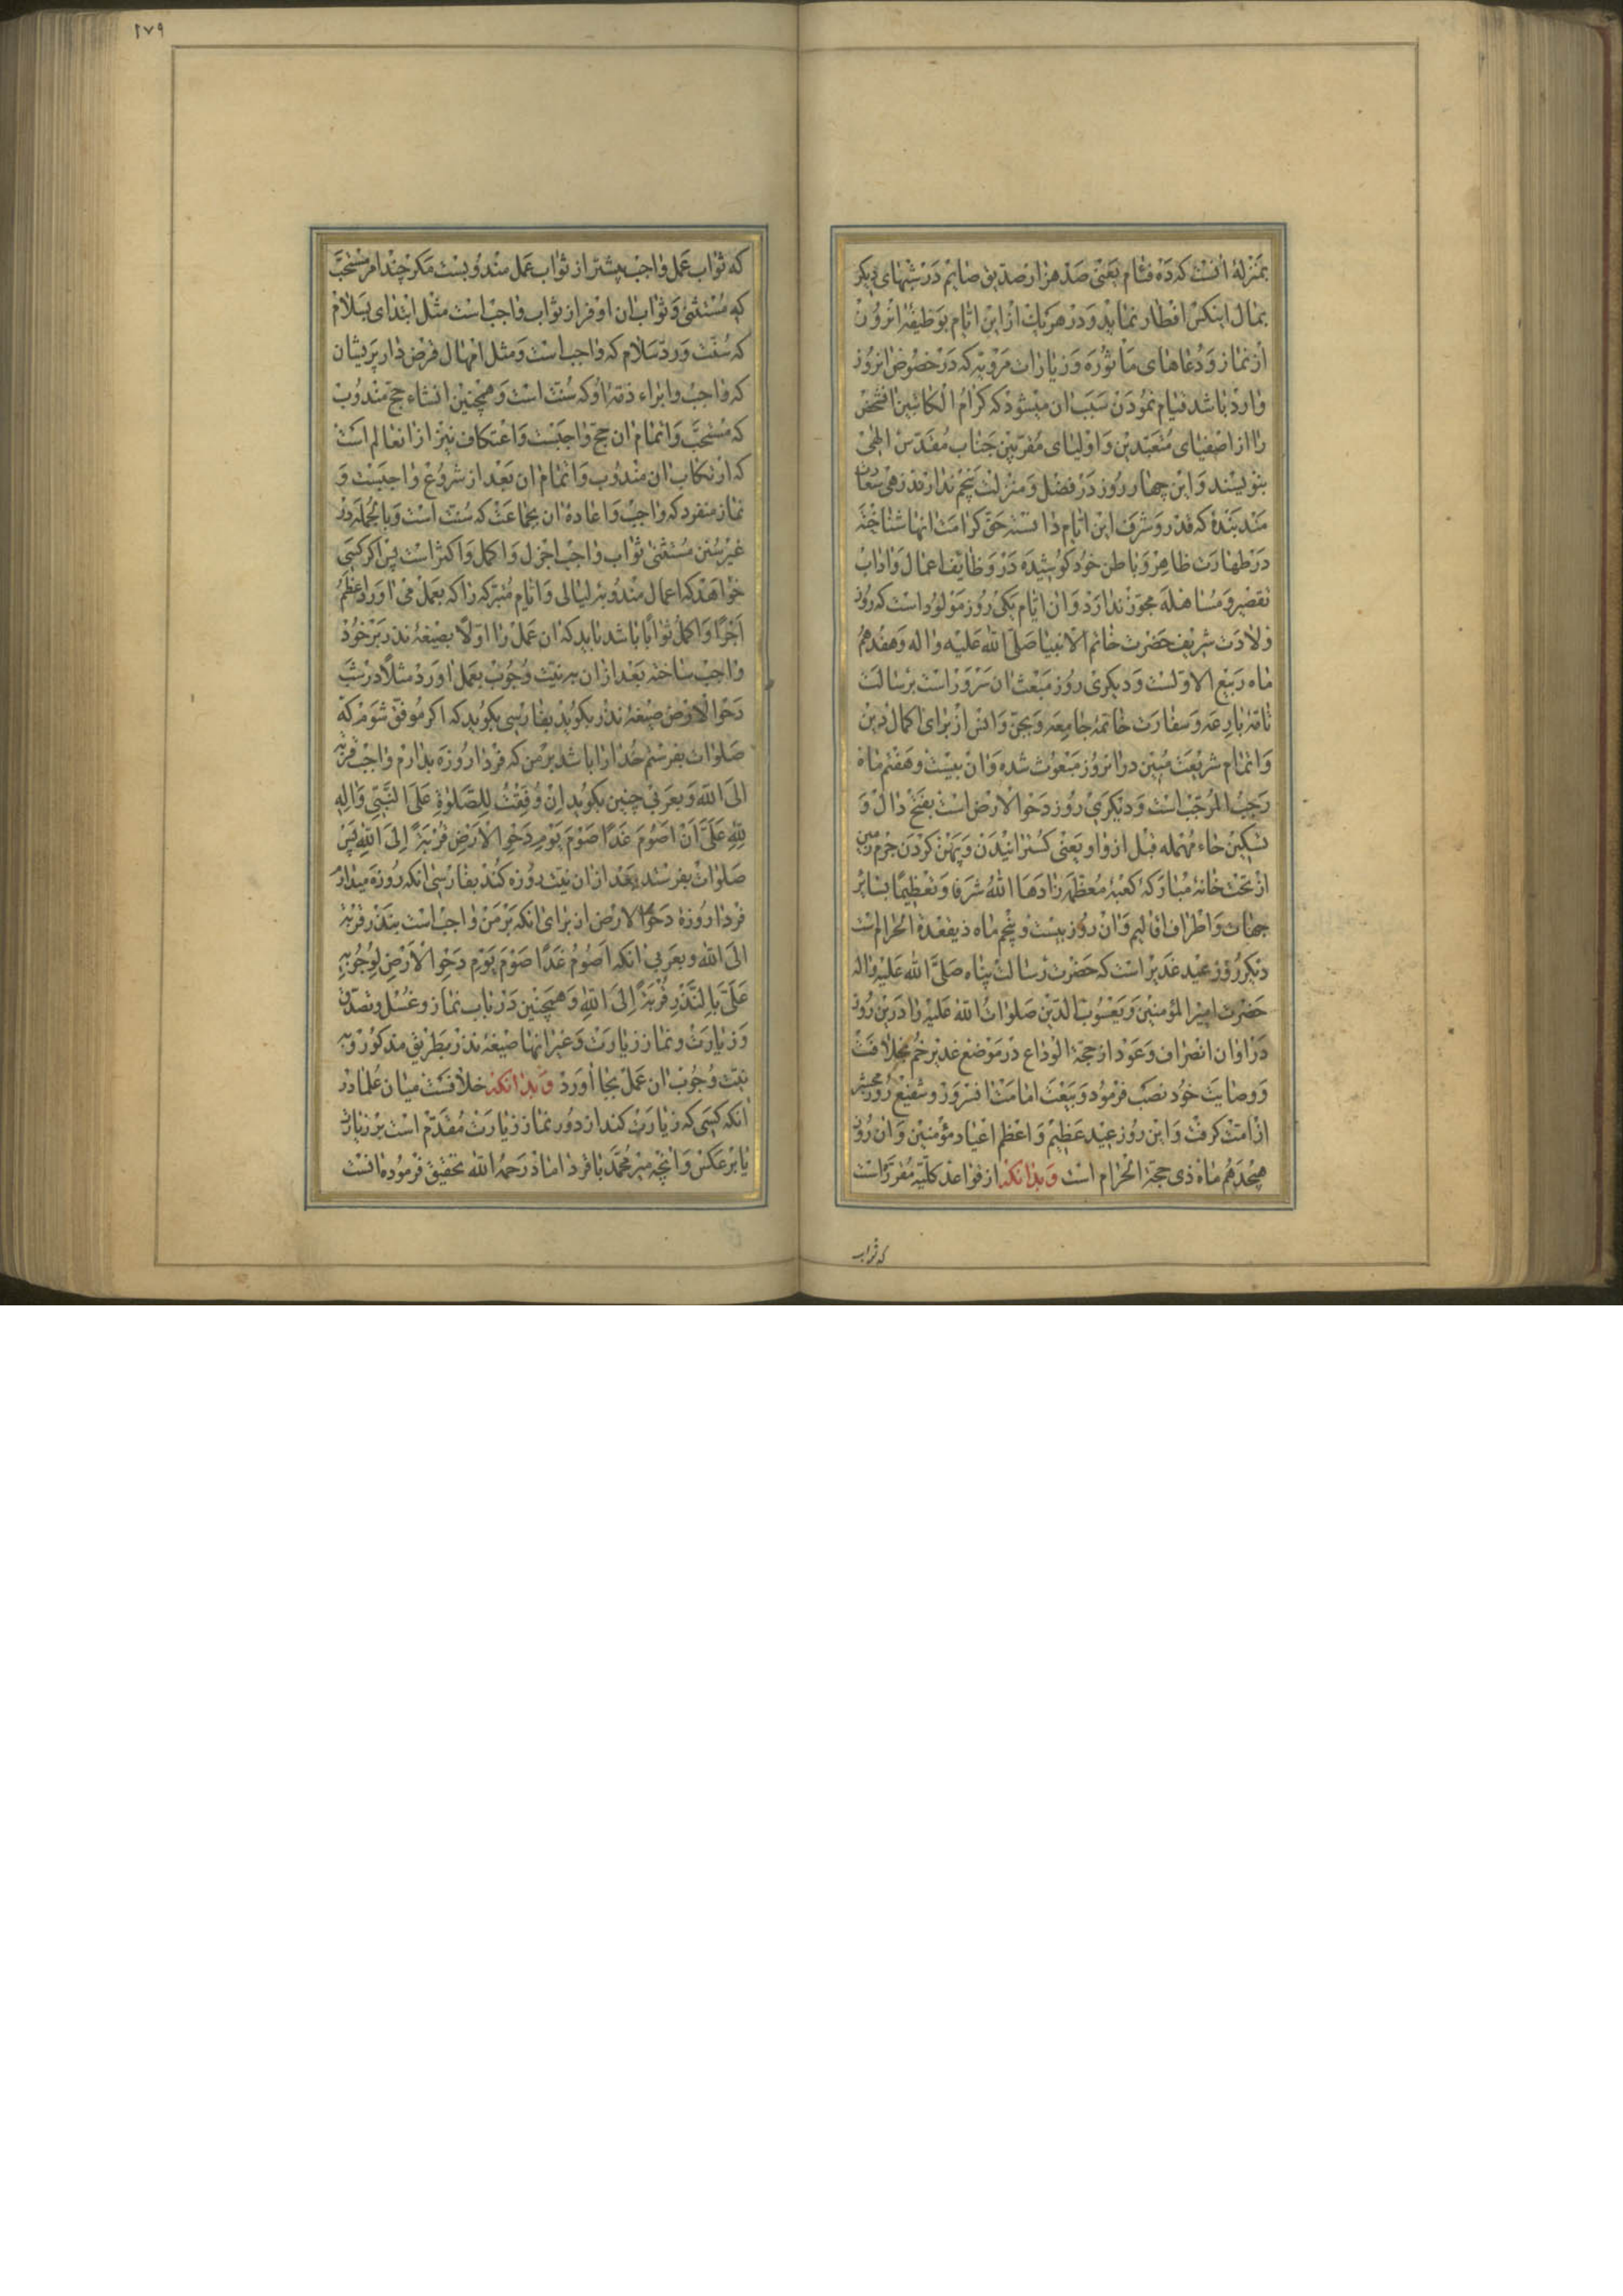 بمنزلهٔ آنست که ده فئام یعنی صد هزار صدیق صایم در شبهای دیکر
بمال اینکس افطار نماید و در هر یک از این ایام بوظیفهٔ انروز
از نماز و دعاهای ماثوره و زیارات مرویه که در خصوص انروز
وارد باشد قیام نمودن سبب ان میشود که کرام الکاتبین انشخص
را از اصفیای متعبدین و اولیای مقربین جناب مقدس الهی
بنویسند و این چهار روز در فضل و منزلت پنجم ندارند زهی سعادت
مند بندهٔ که قدر و شرف این ایام دانسته حق کرامت انها شناخته
در طهارت ظاهر و باطن خود کوشیده در وظایف اعمال و اداب
تقصیر و مساهله مجوز ندارد و ان ایام یکی روز مولود است که روز
ولادت شریف حضرت خاتم الانبیا صلی الله علیه واله و هفدهم
ماه ربیع الاولست و دیکری روز مبعث ان سرور است برسالت
تامهٔ بارعه و سفارت خاتمهٔ جامعه و بجن و انس از برای اکمال دین
و اتمام شریعت مبین در انروز مبعوث شده و ان بیست و هفتم ماه
رجب المرجب است و دیکری روز دحو الارض است بفتح دال و
تسکین حاء مهمله قبل از واو یعنی کسترانیدن و پهن کردن جرم زمین
از تحت خانهٔ مبارکهٔ کعبهٔ معظمه زادها الله شرفا و تعظیما بسایر
جهات و اطراف اقالیم و ان روز بیست و پنجم ماه ذیقعدة الحرام است
دیکر روز عید غدیر است که حضرت رسالت پناه صلی الله علیه واله
حضرت امیر المؤمنین و یعسوب الدین صلوات الله علیه را در این روز
در اوان انصراف و عود از حجة الوداع در موضع غدیر خم بخلافت
و وصایت خود نصب فرمود و بیعت امامت انسرور و شفیع روز محشر
از امت کرفت و این روز عید عظیم و اعظم اعیاد مؤمنین و ان روز
هیجدهم ماه ذی حجة الحرام است و بدانکه از قواعد کلیه مقرر است
که ثواب
۲۷۹
که ثواب عمل واجب بیشتر از ثواب عمل مندوبست مکر چند امر مستحب
که مستثنی و ثواب ان اوفر از ثواب واجب است مثل ابتدای بسلام
که سنت و رد سلام که واجب است و مثل امهال قرض دار پریشان
که واجب و ابراء ذمهٔ او که سنت است و همچنین انشاء حج مندوب
که مستحب و اتمام ان حج واجبست و اعتکاف نیز از انعالم است
که ارتکاب ان مندوب و اتمام ان بعد از شروع واجبست و
نماز منفرد که واجب و اعادهٔ ان بجماعت که سنت است و بالجمله در
غیر سنن مستثنی ثواب واجب اجزل و اکمل و اکثر است پس اکر کسی
خواهد که اعمال مندوبهٔ لیالی و ایام متبرکه را که بعمل می اورد اعظم
اجرًا و اکمل ثوابًا باشد باید که ان عمل را اولًا بصیغهٔ نذر بر خود
واجب ساخته بعد از ان به نیت وجوب بعمل اورد مثلًا در شب
دحو الارض صیغهٔ نذر بکوید بفارسی بکوید که اکر موفق شوم که
صلوات بفرستم خدا را باشد بر من که فردا روزه بدارم واجب قربة
الی الله و بعربی چنین بکوید اِن وُفِّقتُ لِلصَّلوٰةِ عَلَی النَّبِیِّ وَاٰلِهِ
لِلّٰهِ عَلَیَّ اَنْ اَصُومَ غَدًا صَوْمَ یَوْمِ دَحْوِ الْاَرْضِ قُرْبَةً اِلَی اللهِ پس
صلوات بفرستد بعد از ان نیت روزه کند بفارسی انکه روزه میدارم
فردا روزهٔ دحو الارض از برای انکه بر من واجب است بنذر قربة
الی الله و بعربی انکه اَصُومُ غَدًا صَوْمَ یَوْمِ دَحْوِ الْاَرْضِ لِوُجُوبِهِ
عَلَیَّ بِالنَّذْرِ قُرْبَةً اِلَی اللهِ و همچنین در باب نماز و غسل و تصدق
و زیارت و نماز زیارت و غیر انها صیغهٔ نذر بطریق مذکور و به
نیت وجوب ان عمل بجا اورد و بدانکه خلافست میان علما در
انکه کسی که زیارت کند از دور نماز زیارت مقدم است بر زیارت
یا بر عکس و انچه میر محمد باقر داماد رحمه الله تحقیق فرموده انست